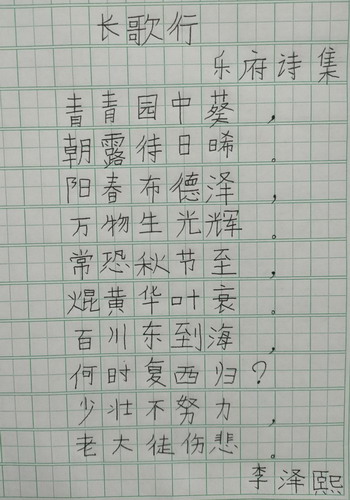 长歌行
乐府诗集
青青园中葵，
朝露待日晞。
阳春布德泽，
万物生光辉。
常恐秋节至，
焜黄华叶衰。
百川东到海，
何时复西归？
少壮不努力，
老大徒伤悲。
李泽熙